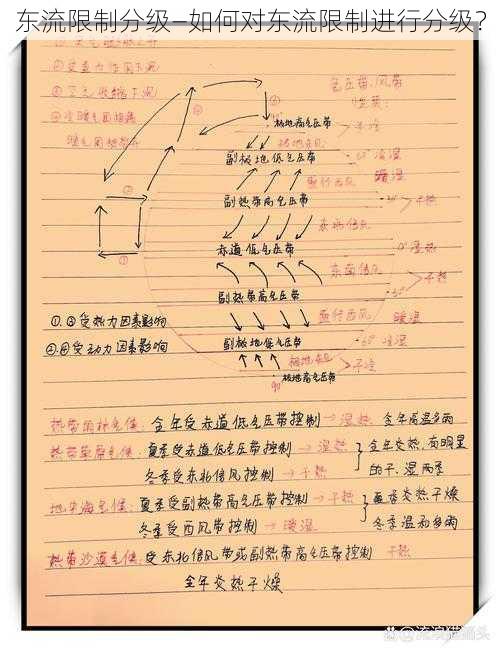 东流限制分级—如何对东流限制进行分级？
气压带、风带
性质：
极地高气压带
干冷
极地东风
副极地低气压带
60° 冷湿
盛行西风 暖湿
副热带高气压带
30° 干热
东北信风
赤道低气压带
0° 湿热
东南信风
干热
30°
副热带高气压带
盛行西风 暖湿
副极地低气压带
60° 冷湿
极地东风
干冷
90° 极地高气压带
①.③受热力因素影响
②.④受动力因素影响
热带雨林气候：全年受赤道低气压带控制→湿热 全年高温多雨
热带草原气候：夏季受赤道低气压带控制→湿热
冬季受东北信风控制→干热
全年炎热，有明显
的干、湿两季
地中海气候：夏季受副热带高气压带控制→干热
冬季受西风带控制→暖湿
夏季炎热干燥
冬季温和多雨
热带沙漠气候：受东北信风带或副热带高气压带控制 干热
全年炎热干燥